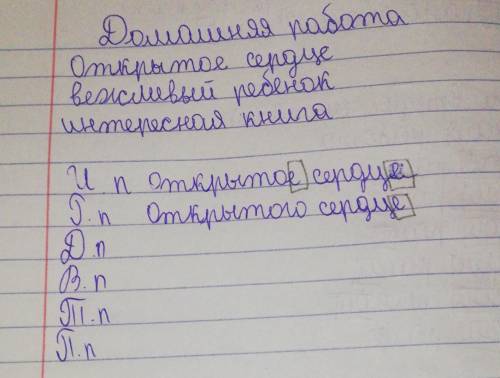 Домашняя работа
Открытое сердце
вежливый ребенок
интересная книга
И. п Открытое сердце
Г. п Открытого сердце
Д. п
В. п
Т. п
П. п